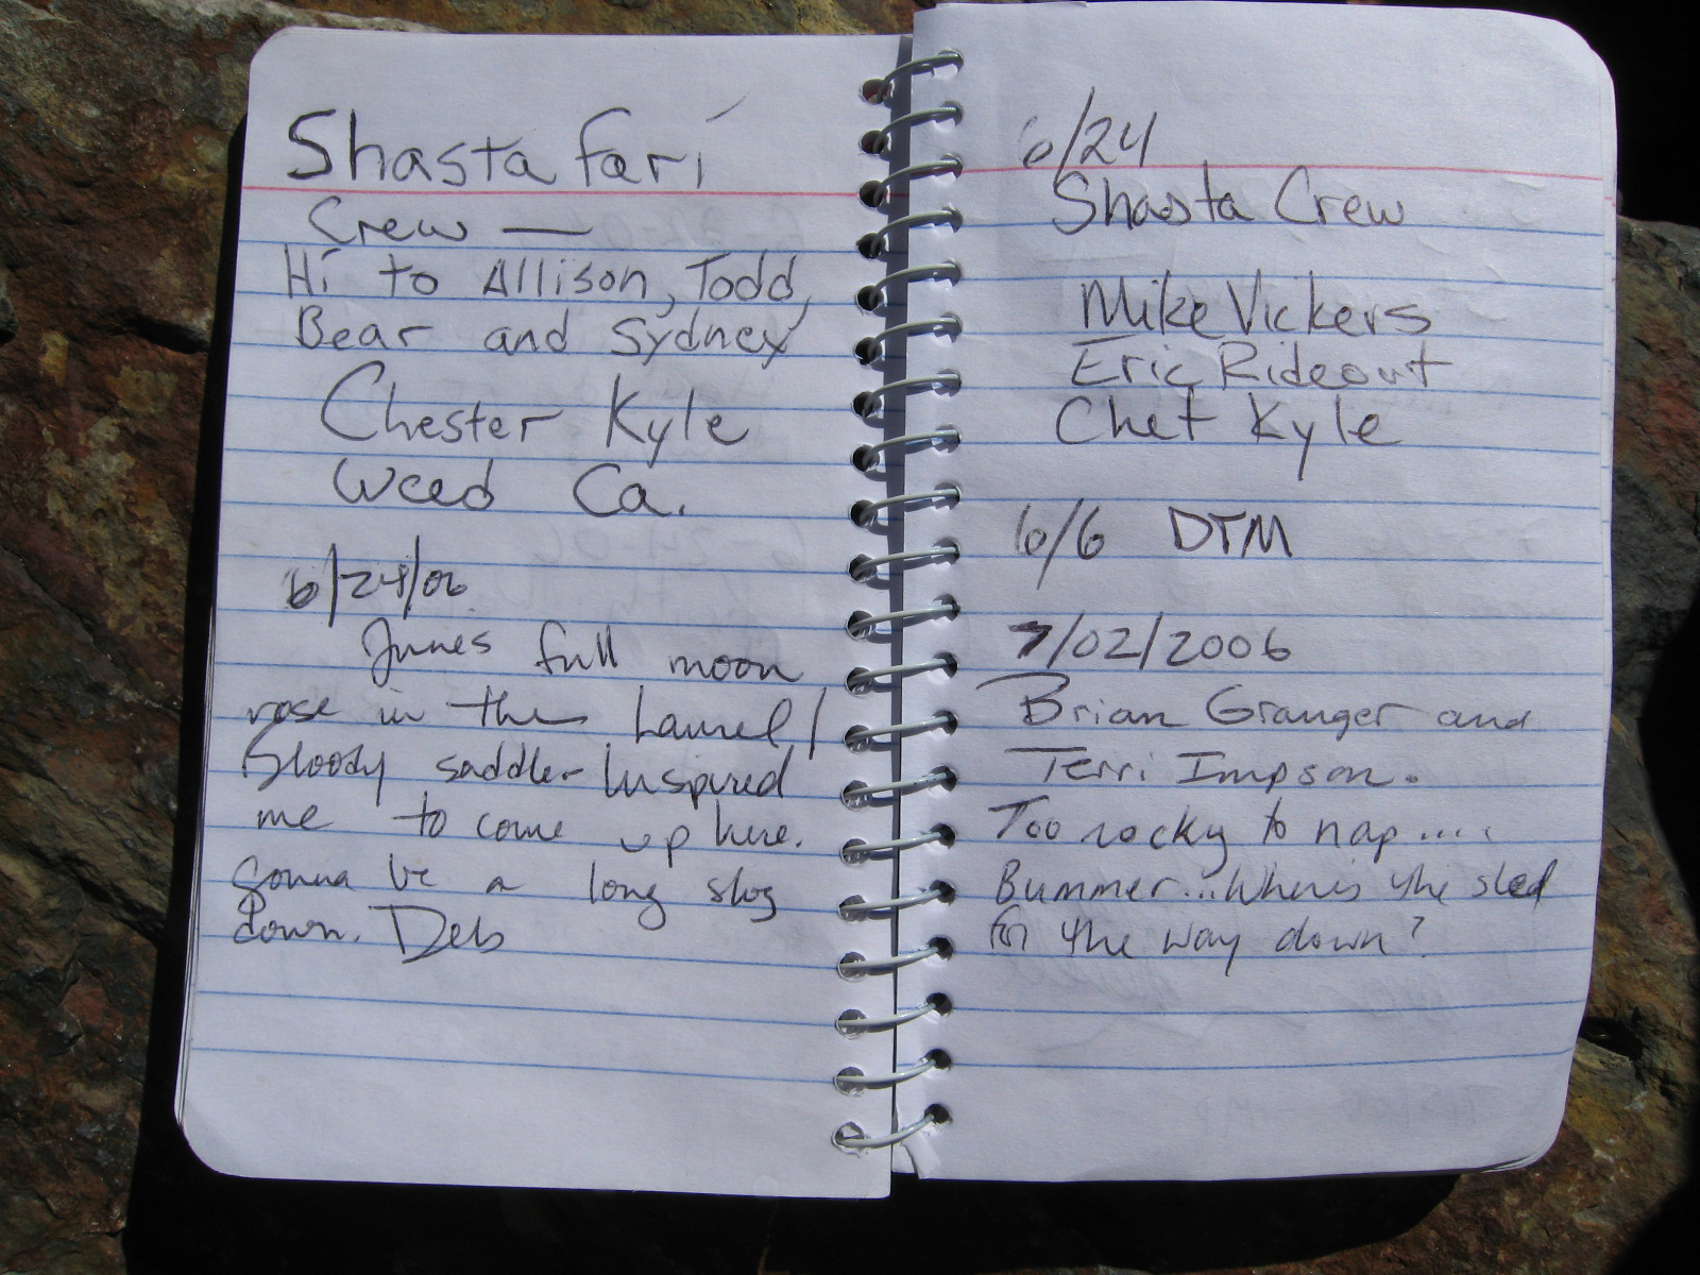 Shasta fari
Crew —
Hi to Allison, Todd,
Bear and Sydney
Chester Kyle
Weed Ca.
6/24/06
Junes full moon
rose in the Laurel/
Bloody saddle- Inspired
me to come up here.
Gonna be a long slog
down. Deb
6/24
Shasta Crew
Mike Vickers
Eric Rideout
Chet Kyle
6/6 DTM
7/02/2006
Brian Granger and
Terri Impson.
Too rocky to nap....
Bummer...Where's the sled
for the way down?